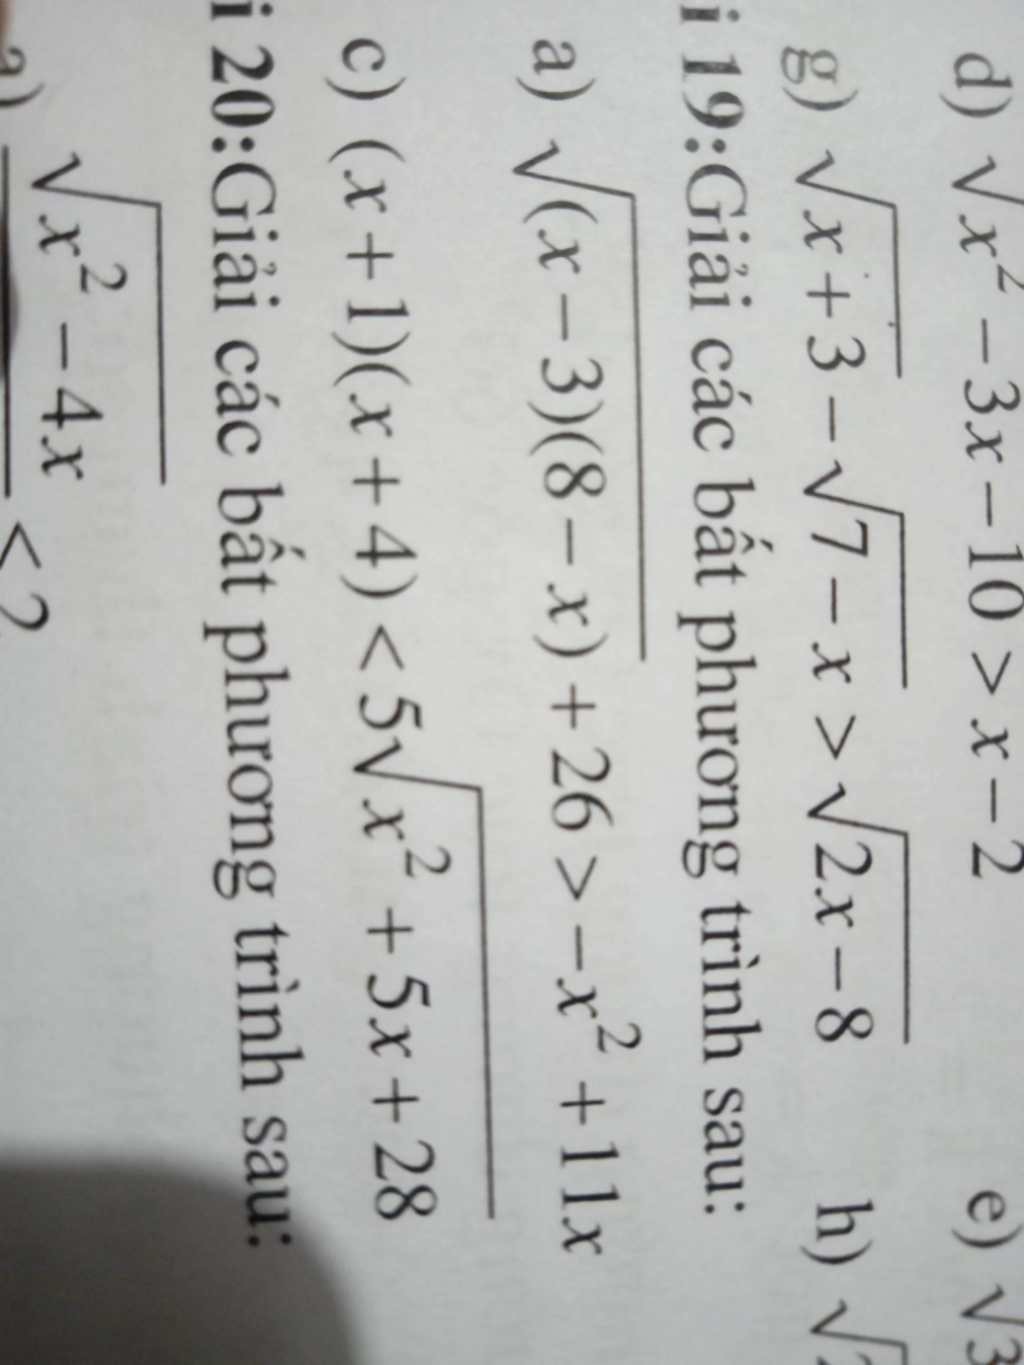 d) √x² − 3x − 10 > x − 2 e) √3
g) √x + 3 − √7 − x > √2x − 8 h) √
i 19:Giải các bất phương trình sau:
a) √(x − 3)(8 − x) + 26 > −x² + 11x
c) (x + 1)(x + 4) < 5√x² + 5x + 28
i 20:Giải các bất phương trình sau:
a) √x² − 4x < 2